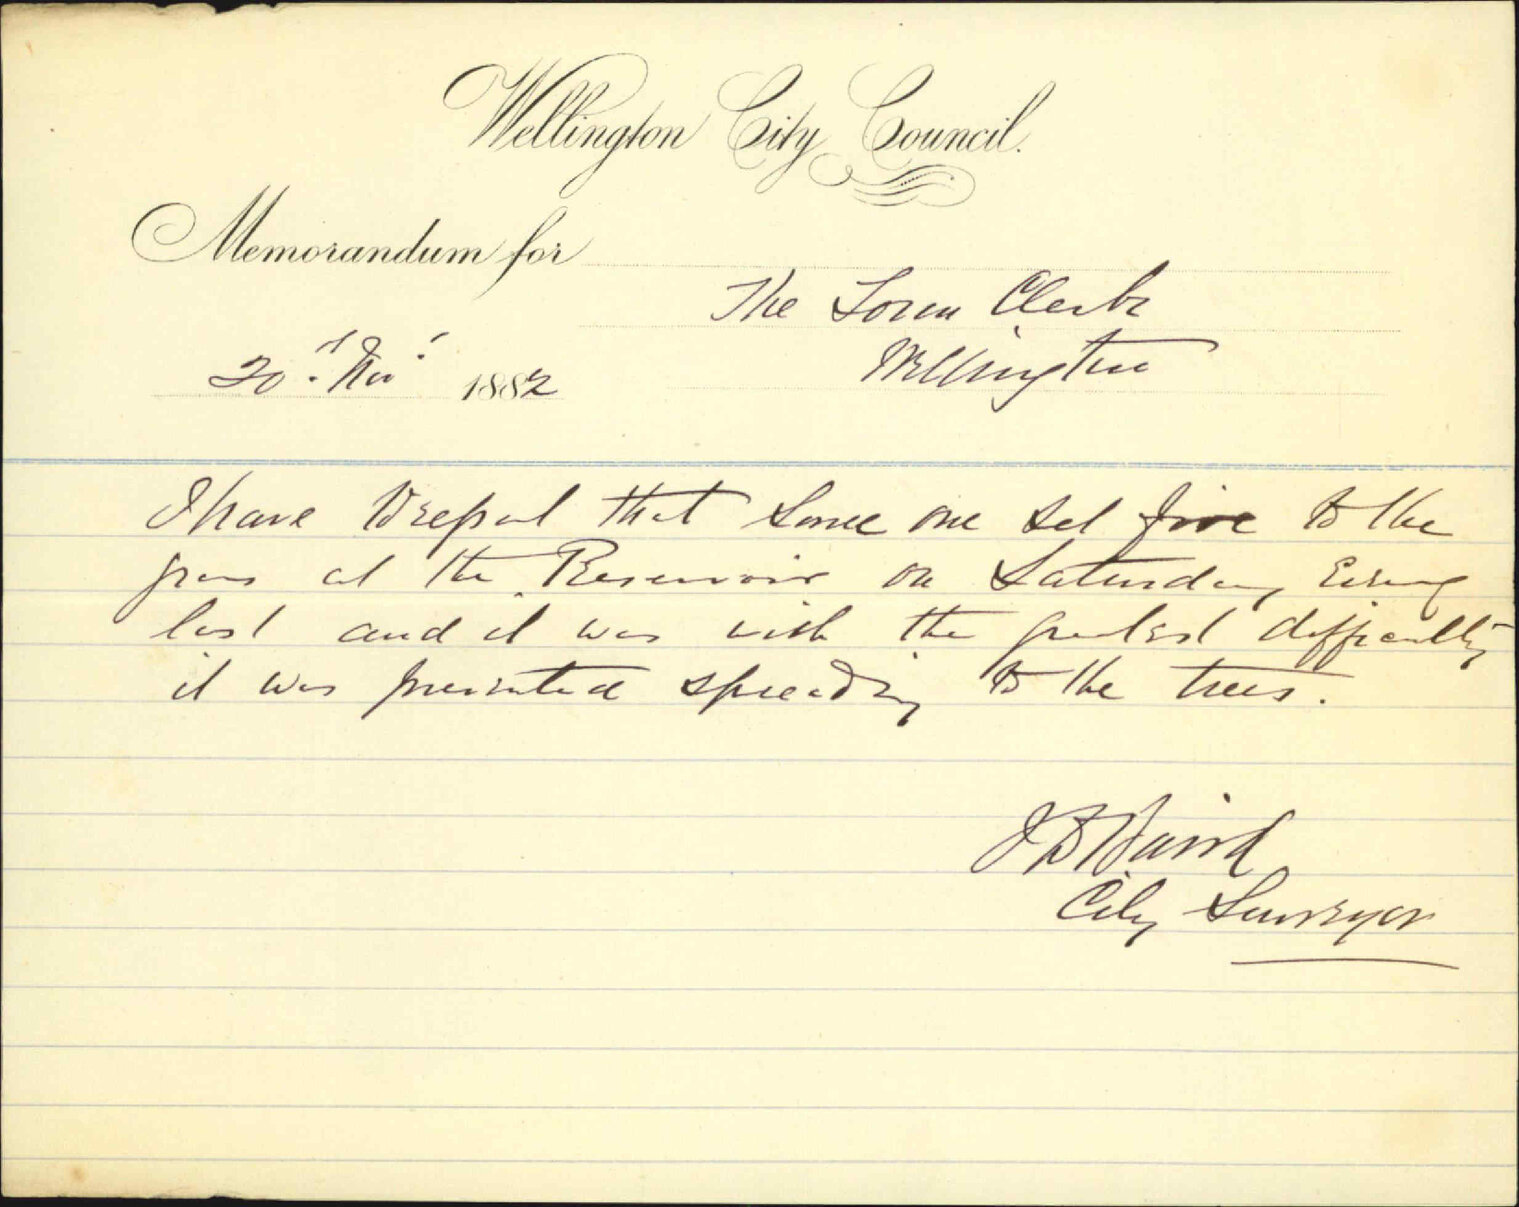 Wellington City Council.
Memorandum for
The Town Clerk
Wellington
20th Nov. 1882
I have to report that some one set fire to the
grass at the Reservoir on Saturday Evening
last and it was with the greatest difficulty
it was prevented spreading to the trees.
J D Baird
City Surveyor